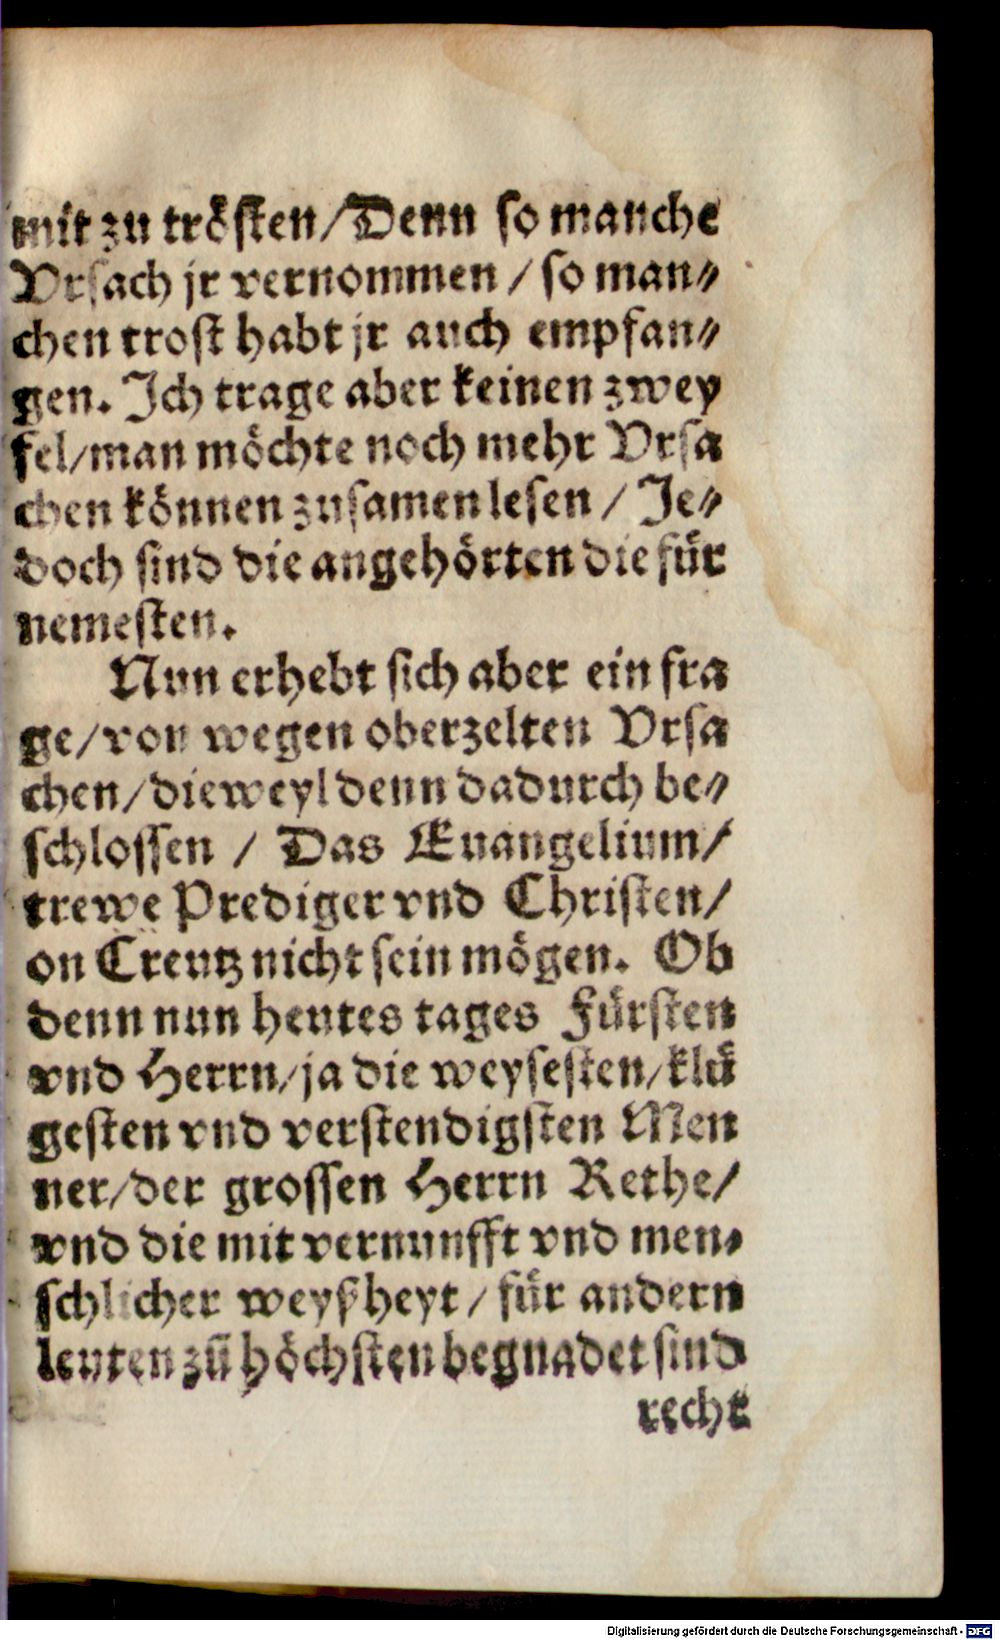 mit zu trösten/Denn so manche
Vrsach jr vernommen / so man⸗
chen trost habt jr auch empfan⸗
gen. Ich trage aber keinen zwey
fel/man möchte noch mehr Vrsa
chen können zusamen lesen / Je⸗
doch sind die angehörten die für
nemesten.
Nun erhebt sich aber ein fra
ge/von wegen oberzelten Vrsa
chen/dieweyl denn dadurch be⸗
schlossen / Das Euangelium/
trewe Prediger vnd Christen/
on Creutz nicht sein mögen. Ob
denn nun heutes tages Fürsten
vnd Herrn/ja die weysesten/klü
gesten vnd verstendigsten Men
ner/der grossen Herrn Rethe/
vnd die mit vernunfft vnd men⸗
schlicher weyßheyt / für andern
leuten zū höchsten begnadet sind
recht
Digitalisierung gefördert durch die Deutsche Forschungsgemeinschaft - DFG